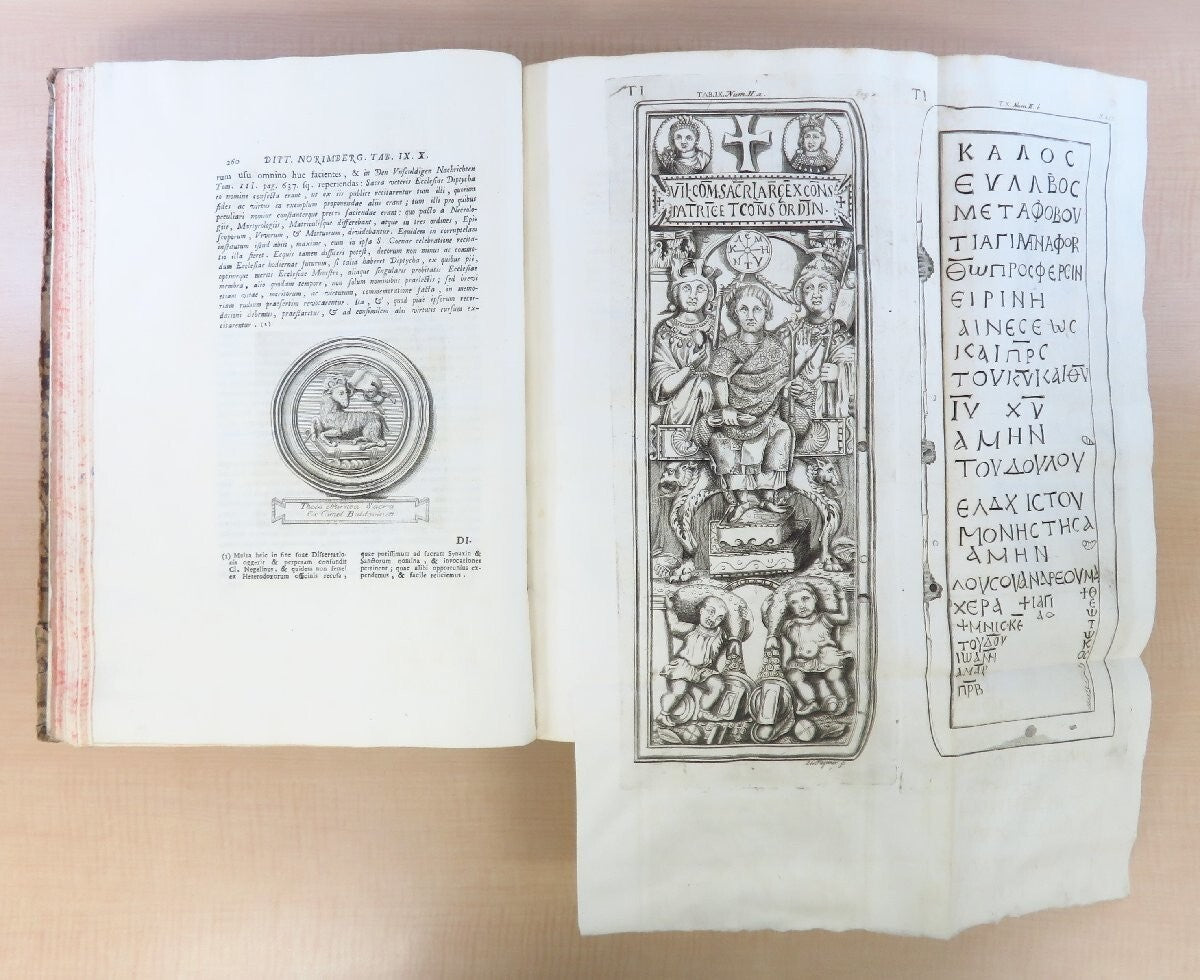 260 DIPT. NORIMBERG. TAB. IX. X.
rum usu omnino huc facientes, & in Den Unschuldigen Nachrichten
Tom. III. pag. 637. sq. reperiendas: Sacra veteris Ecclesiae Diptycha
eo nomine confecta erant, ut ex iis publice recitarentur tum illi, quorum
fides ac virtus in exemplum proponendae aliis erant; tum illi pro quibus
peculiari nomine constanterque preces faciendae erant: quo pacto a Necrolo-
giis, Martyrologiis, Matriculisque differebant, atque in tres ordines, Epi-
scoporum, Vivorum, & Mortuorum, dividebantur. Equidem in corruptelam
institutum istud abiit, maxime, cum in ipsa S. Coenae celebratione recita-
tio illa fieret. Ecquis tamen diffiteri potest, decorum non minus ac commo-
dum Ecclesiae hodiernae futurum, si talia haberet Diptycha, ex quibus pii,
optimeque meriti Ecclesiae Ministri, aliaque singularis probitatis Ecclesiae
membra, alio quodam tempore, non solum nominibus praelectis; sed brevi
etiam vitae, meritorum, ac virtutum, commemoratione facta, in memo-
riam rudium praesertim revocarentur. Ita, &, quid piae ipsorum recor-
dationi debemus, praestaretur, & ad consimilem aliis virtutis cursum ex-
citarentur. (1)
Theca Eburnea Sacra
Ex Cimel. Baldovinett.
DI-
(1) Multa heic in fine suae Dissertatio-
nis oggerit & perperam confundit
Cl. Negelinus, & quidem non semel
ex Heterodoxorum officinis recusa;
quae potissimum ad sacram Synaxin &
Sanctorum nomina, & invocationes
pertinent; quae alibi opportunius ex-
pendemus, & facile reiiciemus.
T I
TAB. IX. Num. II. a.
VILCOMSACRILARGEXCONS
PATRICETCONSORDIN.
T I
T. X. Num. II. b.
ΚΑΛΟC
ΕΥΛΛΒΟC
ΜΕΤΑΦΟΒΟΥ
ΤΙΑΓΙΜΝΑΦΟΡ
ΘωΠΡΟCΦΕΡCΙΝ
ΕΙΡΙΝΗ
ΑΙΝΕCΕωC
ΙΚΑΙΠΡC
ΤΟΥΚΥΙΚΑΙΘΥ
ΙΥ ΧΥ
ΑΜΗΝ
ΤΟΥΔΟΥΛΟΥ
ΕΛΔΧΙCΤΟΥ
ΜΟΝΗCΤΗCΑ
ΑΜΗΝ
ΛΟΥCΟΙΑΝΔΡΕΟΥΜΑ
ΧΕΡΑ +ΙΑΓΙ
ΔΟ
+ΜΝΙCΚΕ
ΤΟΥΔΟΥ
ΙωΑΝΗ
ΠΡΒ